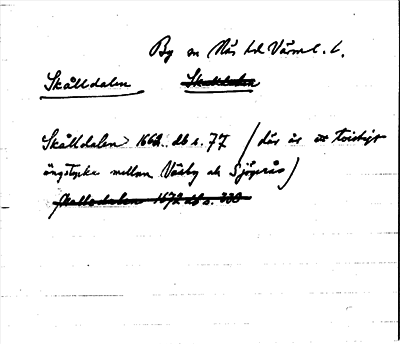 By sn Näs hd Värml. l.
Skålldalen
Skålldalen 1662 db s. 77 (där är ett tvistigt
ängstycke mellan Väsby och Sjögerås)
Skallodalen 1672 db s. 330